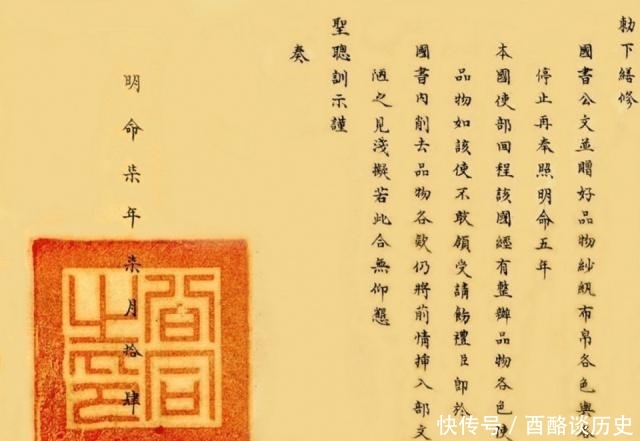 勅下繕修
國書公文並贈好品物紗紈布帛各色與各
停止再奉照明命五年
本國使部回程該國經有整辦品物各色
品物如該使不敢領受請飭禮臣即於
國書內削去品物各款仍將前情揷入部文
陋之見淺擬若此合無仰懇
聖聰訓示謹
奏
明命柒年柒月拾肆
會同之印
快传号 / 酉酪谈历史